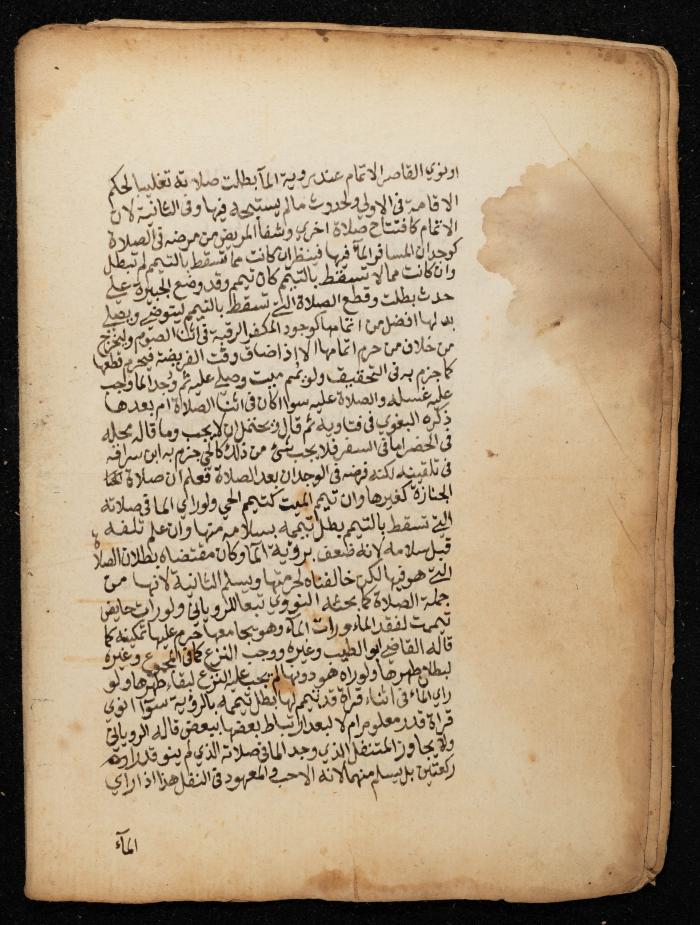 او نوي القاصر الاتمام عند روية المآ بطلت صلاته تغليبا لحكم
الاقامة في الاولي ولحدوث مالم يستبحه فيها وفي الثانية لان
الاتمام كافتتاح صلاة اخري وشفا المريض من مرضه في الصلاة
كوجدان المسافر المآ فيها فينظر ان كانت مما تسقط بالتيمم لم تبطل
وان كانت مما لا تسقط بالتيمم كان تيمم وقد وضع الجبيرة علي
حدث بطلت وقطع الصلاة التي تسقط بالتيمم ليتوضي ويصلي
بدلها افضل من اتمامها كوجود المكفر الرقبة في اثنا الصوم وليخرج
من خلاف من حرم اتمامها الا اذا ضاق وقت الفريضة فيحرم قطعها
كما جزم به في التحقيق ولو يمم ميت وصلي عليه ثم وجد الما وجب
عليه غسله والصلاة عليه سوا اكان في اثنا الصلاة ام بعدها
ذكره البغوي في فتاويه ثم قال ويحتمل ان لا يجب وما قاله محله
في الحضر اما في السفر فلا يجب شئ من ذلك كالحي جزم به ابن سراقة
في تلقينه لكنه فرضه في الوجدان بعد الصلاة فعلم ان صلاة
الجنازة كغيرها وان تيمم الميت كتيمم الحي ولو راي الما في صلاته
التي تسقط بالتيمم بطل تيممه بسلامه منها وان علم تلفه
قبل سلامه لانه ضعف بروية المآ وكان مقتضاه بطلان الصلاة
التي هو فيها لكن خالفناه لحرمتها ويسلم الثانية لانها من
جملة الصلاة كما بحثه النووي تبعا للروياني ولو رات حايض
تيممت لفقد الماء ورات المآء وهو يجامعها حرم عليها تمكينه كما
قاله القاضي ابو الطيب وغيره ووجب النزع كما في المجموع وغيره
لبطلان طهرها ولو راه هو دونها لم يجب عليه النزع لبقاء طهرها ولو
راي الماء في اثناء قراة قد تيمم لها بطل تيممه بالروية سوآ انوي
قراة قدر معلوم ام لا لبعد ارتباط بعضها ببعض قاله الروياني
ولا يجاوز المتنفل الذي وجد الما في صلاته الذي لم ينو قدرا
ركعتين بل يسلم منهما لانه الاحب والمعهود في النفل هذا اذا راي
المآء